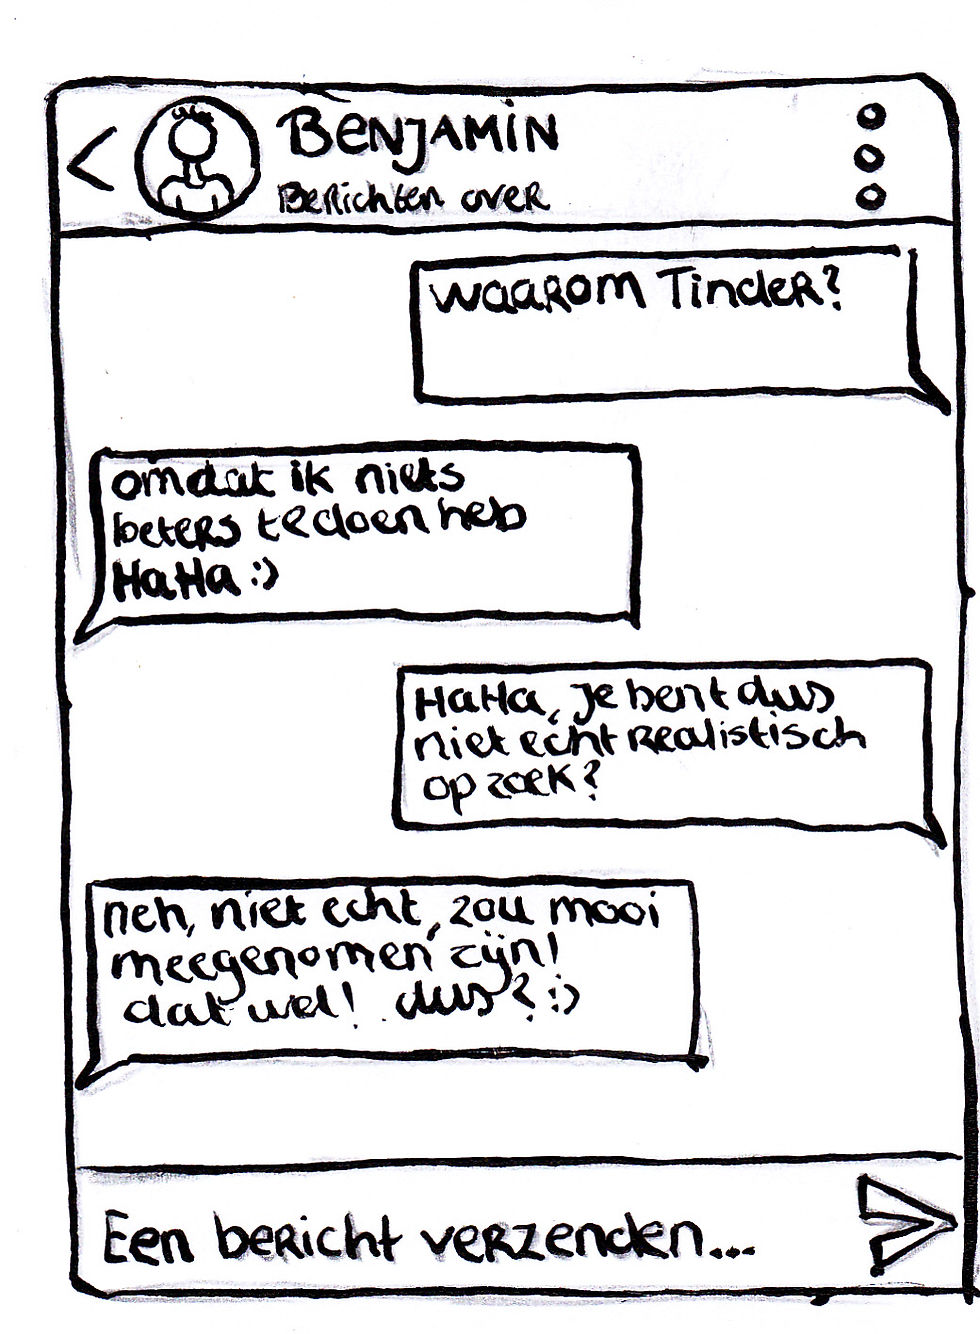 BENJAMIN
Berichten over
waarom Tinder?
omdat ik niets
beters te doen heb
HaHa :)
HaHa, je bent dus
niet echt Realistisch
op zoek?
neh, niet echt, zou mooi
meegenomen zijn!
dat wel! dus? :)
Een bericht verzenden...